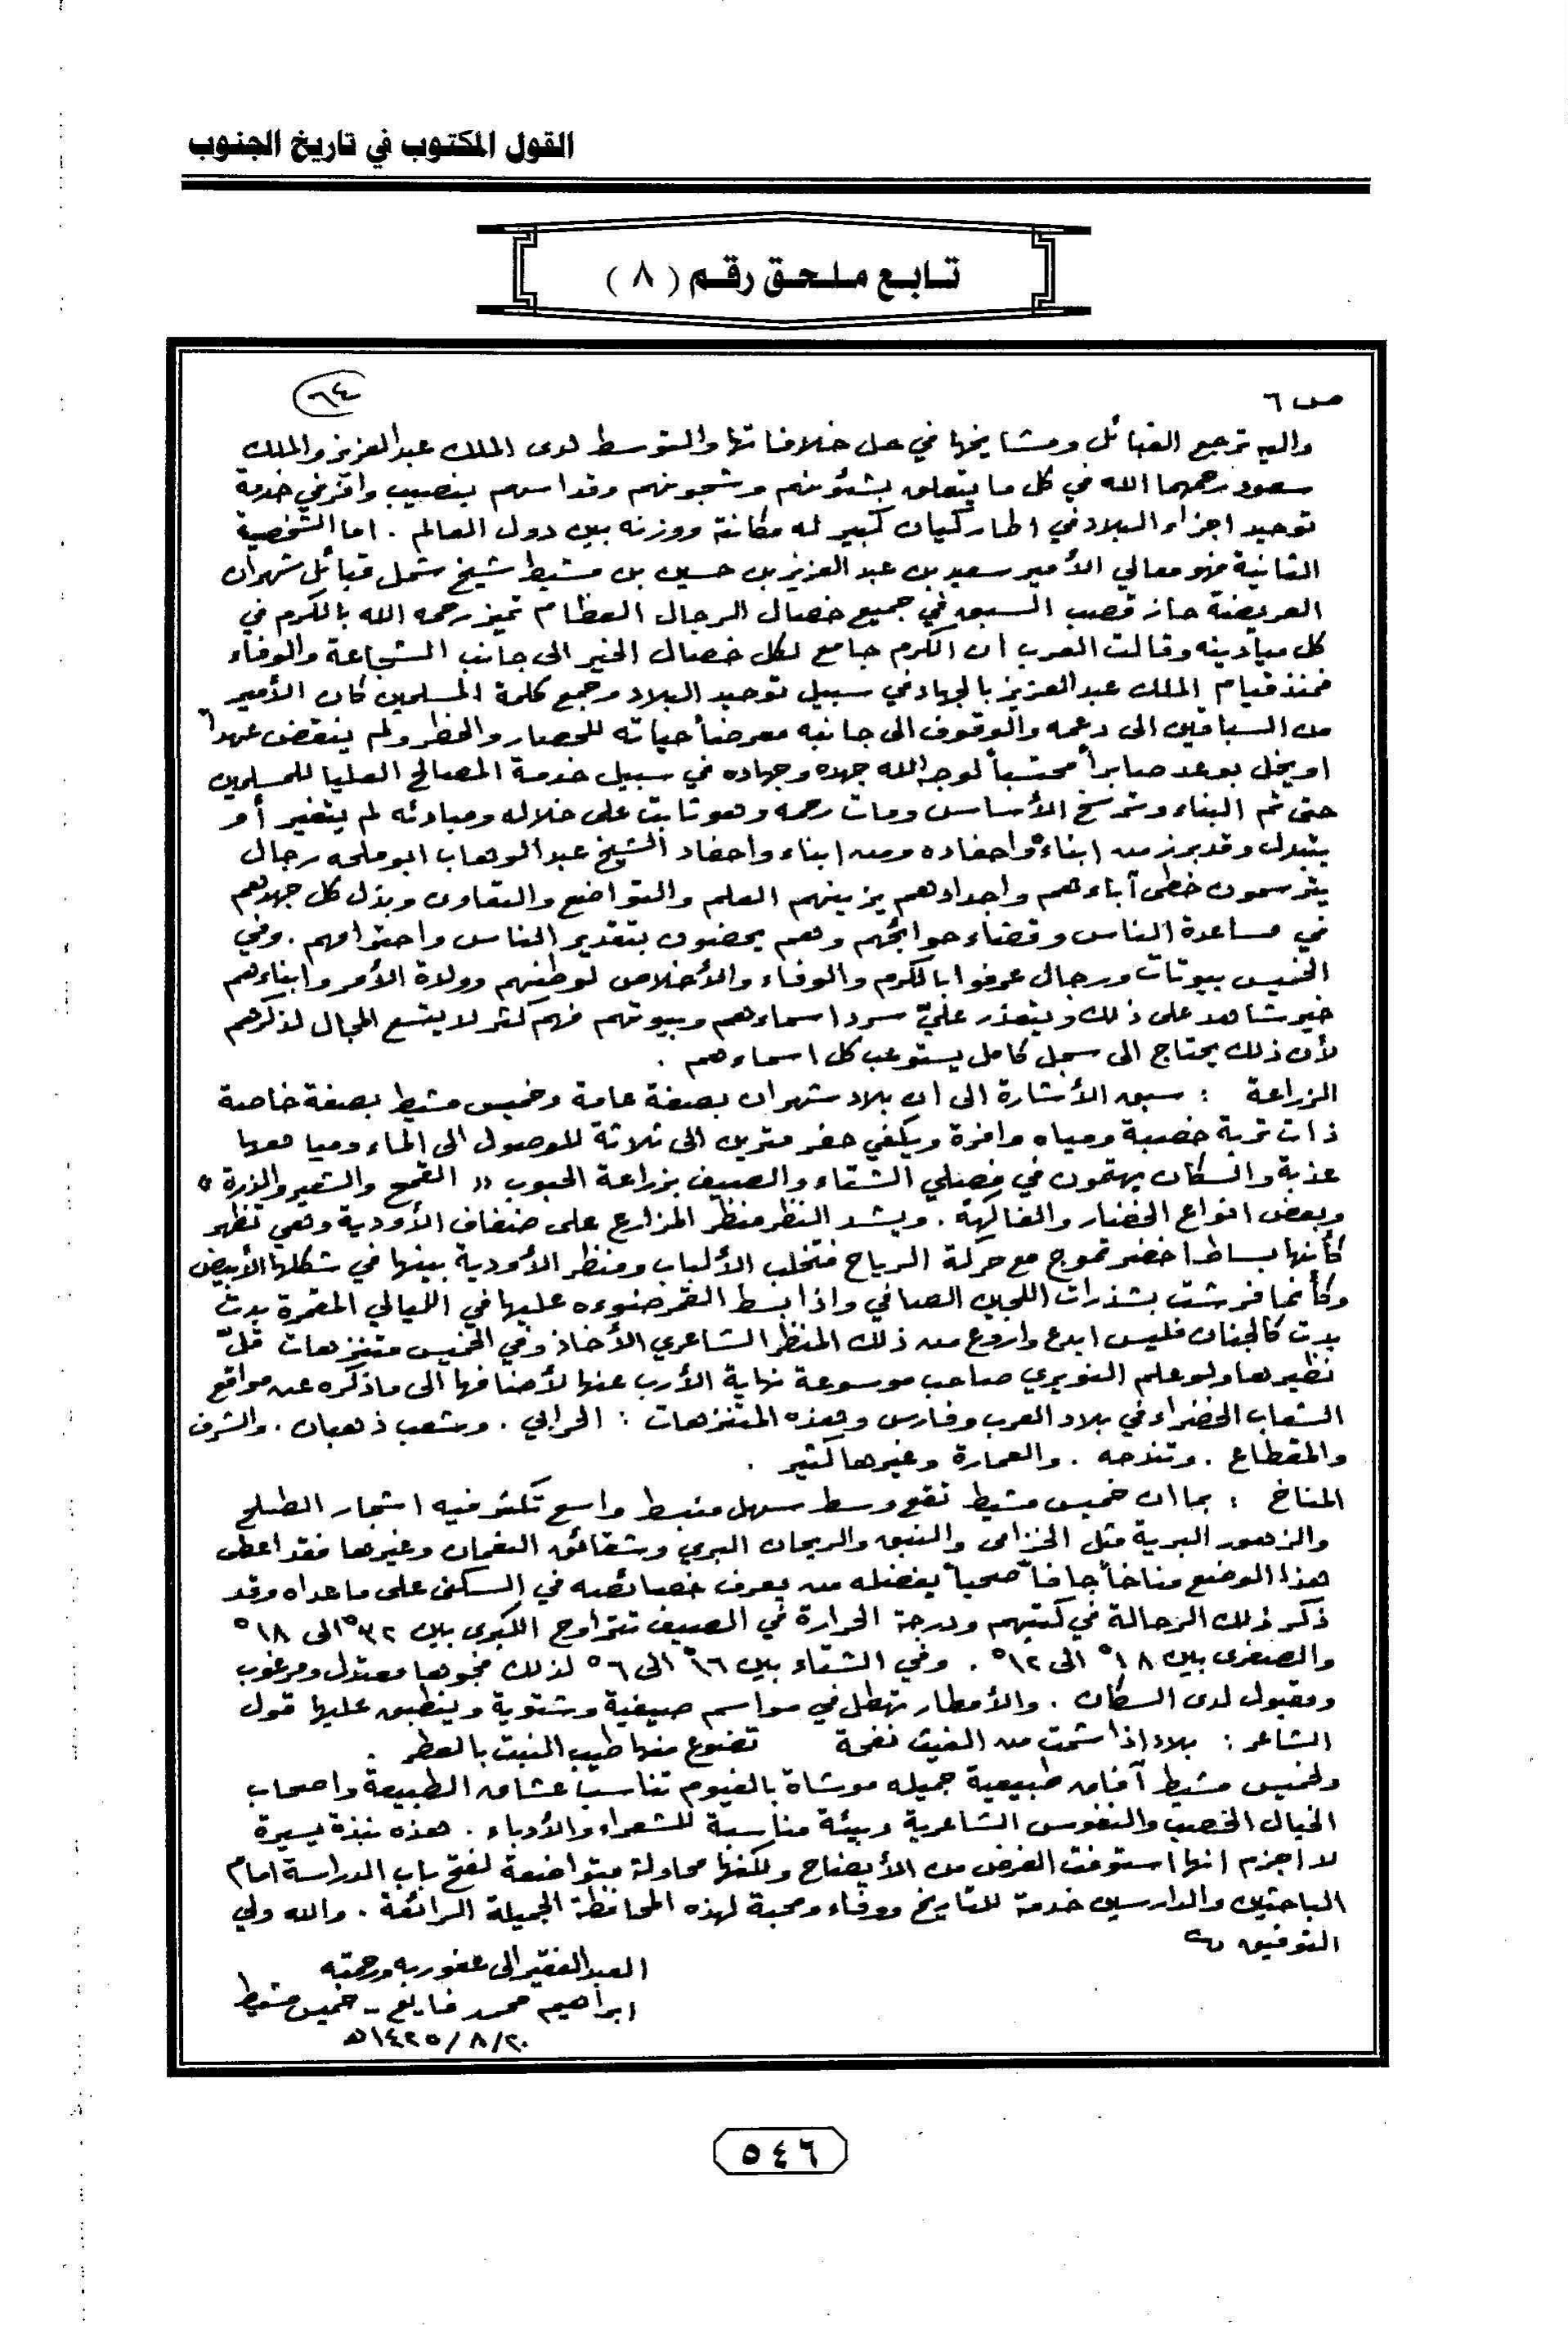 القول المكتوب في تاريخ الجنوب
تابع ملحق رقم ( ٨ )
ص ٦
٦٤
واليه ترجع القبائل ومشايخها في حل خلافاتها والتوسط لدى الملك عبدالعزيز والملك
سعود رحمهما الله في كل ما يتعلق بشئونهم وشجونهم وقد اسهم بنصيب وافر في خدمة
توحيد اجزاء البلاد في اطار كيان كبير له مكانته ووزنه بين دول العالم . اما الشخصية
الثانية فهو معالي الأمير سعيد بن عبد العزيز بن حسين بن مشيط شيخ شمل قبائل شهران
العريضة حاز قصب السبق في جميع خصال الرجال العظام تميز رحمه الله بالكرم في
كل ميادينه وقالت العرب ان الكرم جامع لكل خصال الخير الى جانب الشجاعة والوفاء
فمنذ قيام الملك عبدالعزيز بالجهاد في سبيل توحيد البلاد وجمع كلمة المسلمين كان الأمير
من السباقين الى دعمه والوقوف الى جانبه معرضاً حياته للحصار والخطر ولم ينقض عهداً
او يخل بوعد صابراً محتسباً لوجه الله جهده وجهاده في سبيل خدمة المصالح العليا للمسلمين
حتى تم البناء وترسخ الأساس ومات رحمه وهو ثابت على خلاله ومبادئه لم يتغير أو
يتبدل وقد برز من ابناءه واحفاده ومن ابناء واحفاد الشيخ عبد الوهاب ابو ملحه رجال
يترسمون خطى آباءهم واجدادهم يزينهم العلم والتواضع والتعاون وبذل كل جهدهم
في مساعدة الناس وقضاء حوائجهم وهم يحضون بتقدير الناس واحترامهم . وفي
الخميس بيوتات ورجال عرفوا بالكرم والوفاء والأخلاص لوطنهم وولاة الأمر وابناءهم
خير شاهد على ذلك ويتعذر عليّ سرد اسماءهم وبيوتهم فهم كثر لا يتسع المجال لذكرهم
لأن ذلك يحتاج الى سجل كامل يستوعب كل اسماءهم .
الزراعة : سبق الأشارة الى ان بلاد شهران بصفة عامة وخميس مشيط بصفة خاصة
ذات تربة خصبة ومياه وافرة ويكفي حفر مترين الى ثلاثة للوصول الى الماء ومياهها
عذبة والسكان يهتمون في فصلي الشتاء والصيف بزراعة الحبوب « القمح والشعير والذرة »
وبعض انواع الخضار والفاكهة . ويشد النظر منظر المزارع على ضفاف الأودية وهي تظهر
كأنها بساط اخضر تموج مع حركة الرياح فتخلب الألباب ومنظر الأودية بينها في شكلها الأبيض
وكأنما فرشت بشذرات اللجين الصافي واذا بسط القمر ضوءه عليها في الليالي المقمرة بدت
بدت كالجنان فليس ابدع واروع من ذلك المنظر الشاعري الأخاذ وفي الخميس متنزهات قلّ
نظيرها ولو علم النويري صاحب موسوعة نهاية الأرب عنها لأضافها الى ما ذكره عن مواقع
الشعاب الخضراء في بلاد العرب وفارس وهذه المتنزهات : الحرابي . وشعب ذهبان . والشرف
والمقطاع . وتندحه . والعمارة وغيرها كثير .
المناخ : بما ان خميس مشيط تقع وسط سهل منبسط واسع تكثر فيه اشجار الطلح
والزهور البرية مثل الخزامى والنبق والريحان البري وشقائق النعمان وغيرها فقد اعطى
هذا الوضع مناخاً جافاً صحياً يفضله من يعرف خصائصه في السكن على ما عداه وقد
ذكر ذلك الرحالة في كتبهم ودرجة الحرارة في الصيف تتراوح الكبرى بين ٣٢ْ الى ١٨ْ
والصغرى بين ١٨ْ الى ١٢ْ . وفي الشتاء بين ١٦ْ الى ٦ْ لذلك فجوها معتدل ومرغوب
ومقبول لدى السكان . والأمطار تهطل في مواسم صيفية وشتوية وينطبق عليها قول
الشاعر : بلاد اذا شمت من الغيث نفحة تضوع منها طيب النبت بالعطر .
ولخميس مشيط آفاق طبيعية جميله موشاة بالغيوم تناسب عشاق الطبيعة واصحاب
الخيال الخصب والنفوس الشاعرية وبيئة مناسبة للشعراء والأدباء . هذه نبذة يسيرة
لا اجزم انها استوفت الغرض من الأيضاح ولكنها محاولة متواضعة لفتح باب الدراسة امام
الباحثين والدارسين خدمة للتاريخ ووفاء ومحبة لهذه المحافظة الجميلة الرائعة . والله ولي
التوفيق
العبد الفقير الى عفو ربه ورحمته
ابراهيم محمد فايع - خميس مشيط
٢٠/ ٨/ ١٤٢٥هـ
٥٤٦